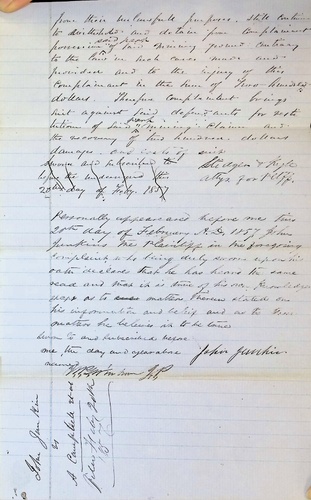 from their unlawfull purpose, still continue
to withhold and detain from complainant
possession of said mining ground contrary
said
to the law in such cases made and
provided and to the injury of this
complainant in the sum of Two hundred
dollars. Therefore complainant brings
suit against said defendants for
of said mining claims and
the recovery of two hundred dollars
damages and costs of suit
sworn and subscribed to
before the undersigned this
20th day of Feby. 1857
attys for Plff.
Personally appeared before me this
20th day of February A.D. 1857 John
Junkins the Plaintiff in the foregoing
complaint, who being duly sworn upon his
oath declares that he has heard the same
read and that it is true of his own knowledge
except as to matters therein stated on
his information and belief and as to those
matters he believes it to be true
Sworn to and subscribed before
me the day and year above
John Junkin
J.P.
John Junkin
vs
A Campbell et al
Filed Feby 20th
1857